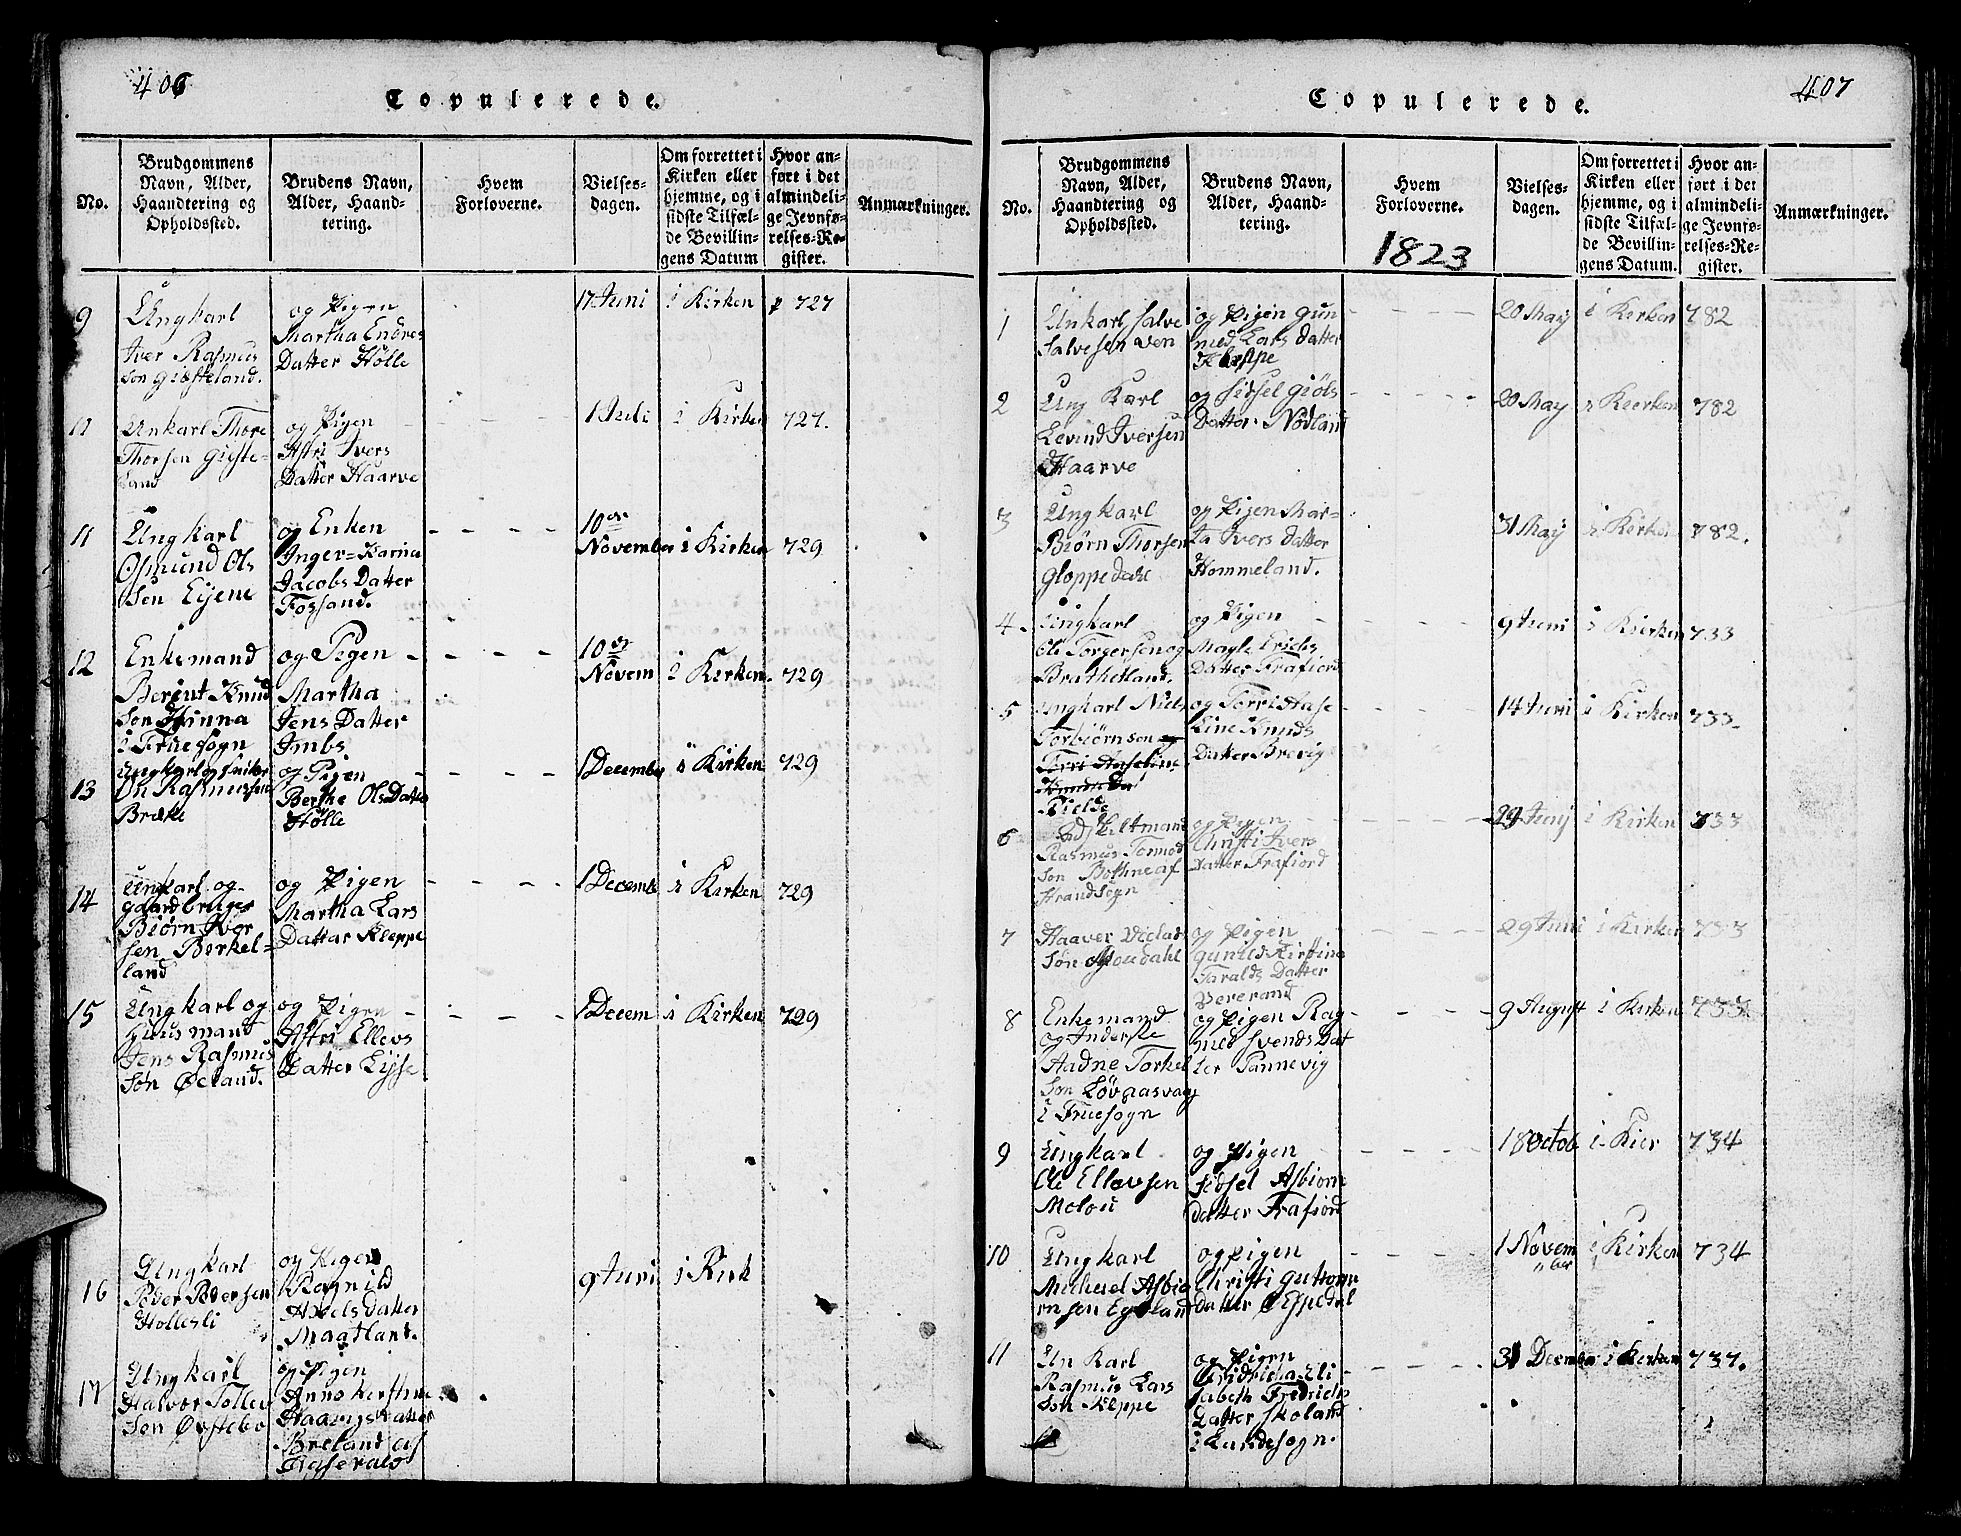 406
Copulerede.
No.
Brudgommens
Navn, Alder,
Haandtering og
Opholdssted.
Brudens Navn,
Alder, Haand-
tering.
Hvem
Forloverne.
Vielses-
dagen.
Om forrettet i
Kirken eller
hjemme, og i
sidste Tilfæl-
de Bevillin-
gens Datum
Hvor an-
ført i det
almindeli-
ge Jevnfø-
relses-Re-
gister.
Anmærkninger.
9
Ungkarl
Iver Rasmus
Søn Giesteland.
og Pigen
Martha Endres
Datter Hølle
17 Juni
i Kirken
p 727
11
Unkarl Thore
Thorsen Gieste-
land
og Pigen
Astri Ivers
Datter Haarve
1 Juli
i Kirken
727.
11
Ungkarl
Osmund Ols
Søn Eijene
og Enken
Inger=Karina
Jacobs Datter
Fossand.
10de
November
i Kirken
729
12
Enkemand
Berent Knud
Søn Hinna
i Fruesogn
og Pigen
Martha
Jens Datter
Imbs
10de
Novem
i Kirken.
729
13
Ungkarl og
Ol Rasmussen
Brække
og Pigen
Berthe Ols Datter
Hølle
1 Decembe
i Kirken
729
14
Ungkarl og
gaardbruger
Biørn Iver
sen Berkel-
land
og Pigen
Martha Lars
Datter Kleppe
1 Decembe
i Kirken
729
15
Ungkarl og
Huusmand
Jens Rasmus
Søn Øeland.
og Pigen
Astri Ellevs
Datter Eijse
1 Decem
i Kirken
729
16
Ungkarl
Peder Pedersen
Hollesli
og Pigen
Ragnild
Axels datter
Maatland.
9 Juni
i Kirk
17
Ungkarl
Halvor Tollev
Søn Øvstebø
og Pigen
Anna Kerstine
Haavrgs datter
Breland af
407
Copulerede.
No.
Brudgommens
Navn, Alder,
Haandtering og
Opholdssted.
Brudens Navn,
Alder, Haand-
tering.
Hvem
Forloverne.
1823
Vielses-
dagen.
Om forrettet i
Kirken eller
hjemme, og i
sidste Tilfæl-
de Bevillin-
gens Datum.
Hvor an-
ført i det
almindeli-
ge Jevnfø-
relses-Re-
gister.
Anmærkninger.
1
Unkarl Salve
Salvesen Ven
og Pigen Gun
nild Lars datter
Kleppe
20 May
i Kerken
782
2
Ung Karl
Eevind Iversen
Haarve
og Sidsel Giøls
Datter Nødland
20 May
i Keerken
782
3
Ungkarl
Biørn Thorsen
Gloppedahl
og Pigen Mar-
ta Ivers datter
Hommeland.
31 May
i Kirken
782.
4
Ungkarl
Ole Torgersen og
Brathetland.
og Pigen
Magle Erichs
Datter Frafiord
9 Juni
i Kierken
733
5
Ungkarl Niels
Torbiørnsen og
Kielde
og Torri Aase
Line Knuds
Datter Brevig
14 Juni
i Kirken
733
6
Rasmus Tonnod
Søn Bothne af
Strandsogn
og Pigen
Christi Ivers
Datter Frafiord
29 Junj
i Kirken
733
7
Haaver Vielas
Søn Moudahl
og Pigen
Gunild Kirstina
Taralds Datter
29 Juni
i Kirken
733
8
Enkemand
og Inderste
Aadne Torkel
Søn Løvaasvaag
i Fruesogn
og Pigen Rag
nild Svends Dat
ter Pannevig
9 August
i Kirken
733
9
Ungkarl
Ole Ellevsen
Molou
og Pigen
Sidsel Asbiorn
datter Frafiord
18 Octob
i Kier
734
10
Ungkarl
Michael Asbiø
rnsen Egeland
og Pigen
Christi Guttorm
datter Øespedal
1 Novem
ber
i Kirken
734
11
Un Karl
Rasmus Lars
Søn Kleppe
og Pigen
Fridricha Eli
sabeth Fredrichs
Datter Skoland
i Lundesogn.
31 Decembe
i Kerken
737.